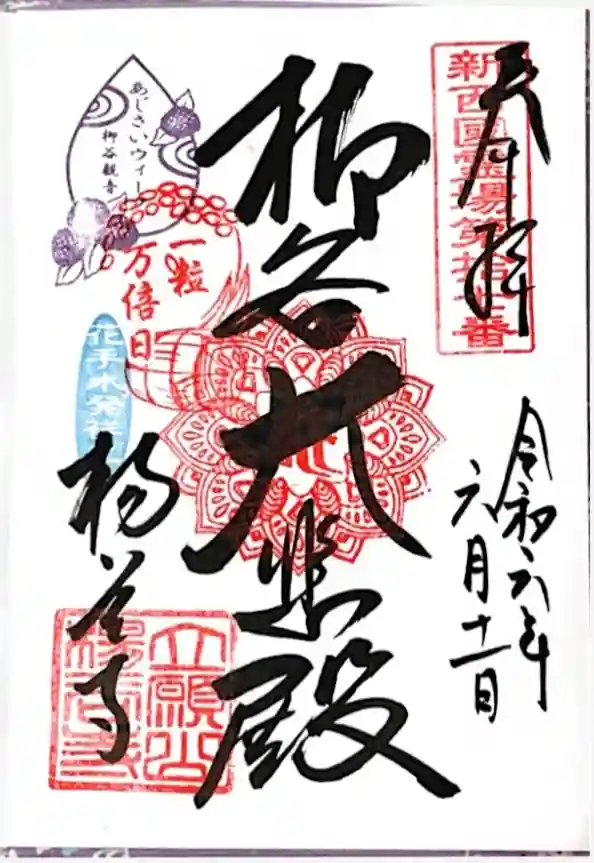 奉拝
新西國霊場第拾七番
令和六年
六月十一日
柳谷大悲殿
あじさいウィーク
柳谷観音
一粒
万倍日
花手水発祥
楊谷寺
立願山
楊谷寺